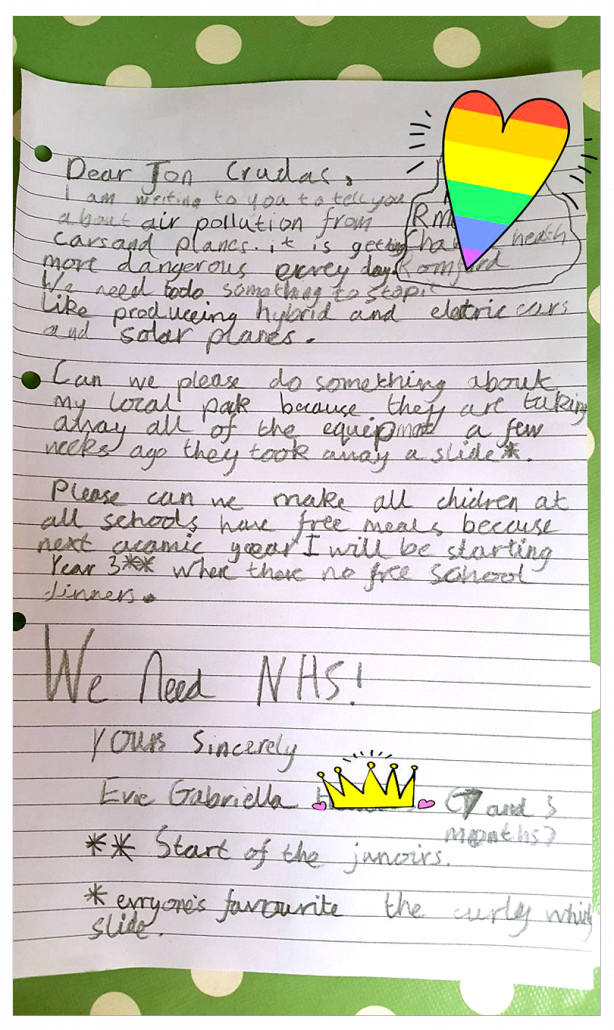 Dear Jon Crudas,
I am writing to you to tell you
about air pollution from
Rm
cars and planes. it is getting
Cha heath
more dangerous evrey day.
Romford
We need todo something to stop it
Like produceing hybrid and eletric cars
and solar planes.
Can we please do something about
my local park because they are taking
away all of the equipmet a few
weeks ago they took away a slide*.
Please can we make all chidren at
all schools have free meals because
next acamic year I will be starting
Year 3** where there no free school
dinners.
We Need NHS!
Yours Sincerely
Evie Gabriella (7 and 3
months)
** Start of the junoirs.
* evryone's favourite the curly whirly
slide.